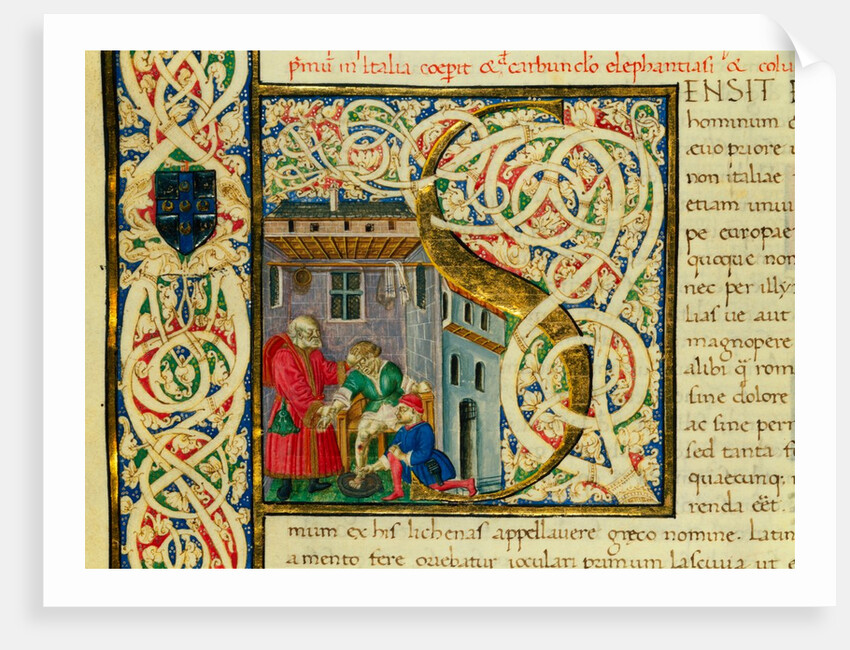 p̄mū in Italia coepit & carbunclo elephantiasi & colu
SENSIT
hominum
æuo priore
non italiae
etiam uniu
pe europae
quoque non
nec per illy
lias ue aut
magnopere
alibi q̄ rom
sine dolore
ac sine per
sed tanta f
quaecunq.
renda
mum ex his lichenas appellauere gręco nomine. Latin
a mento fere oriebatur ioculari primum lasciuia ut e